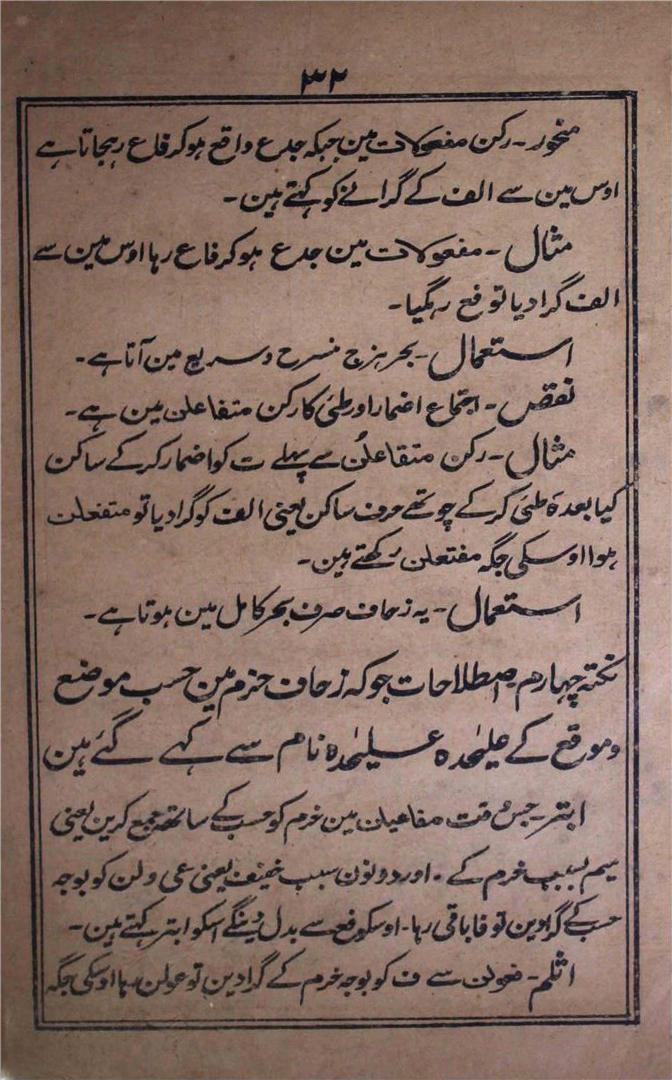 ۳۲
منحور۔ رکن مفعولات مین جبکہ جدع واقع ہوکر فاع رہجاتا ہے
اوس مین سے الف کے گرانے کو کہتے ہین۔
مثال۔ مفعولات مین جدع ہوکر فاع رہا اوس مین سے
الف گرا دیا تو فع رہگیا۔
استعمال۔ بحر ہزج منسرح و سریع مین آتا ہے۔
نقص۔ اجتماع اضمار اور طئ کا رکن متفاعلن مین ہے۔
مثال۔ رکن متفاعلُن سے پہلے ت کو اضمار کرکے ساکن
کیا بعدہٗ طئ کرکے چوتھے حرف ساکن یعنی الف کو گرا دیا تو متفعلن
ہوا اوسکی جگہ مفتعلن رکھتے ہین۔
استعمال۔ یہ زحاف صرف بحر کامل مین ہوتا ہے۔
نکتہ چہارم۔ اصطلاحات جوکہ زحاف خزم مین حسب موضع
و موقع کے علیٰحدہ علیٰحدہ نام سے کہے گئے ہین
ابتر۔ جس وقت مفاعیلن مین خرم کو جب کے ساتھ جمع کرین یعنی
میم بسبب خرم کے۔ اور دونون سبب خفیف یعنی عی و لن کو بوجہ
جب کے گراوین تو فا باقی رہا۔ اوسکو فع سے بدل دینگے اسکو ابتر کہتے ہین۔
اثلم۔ فعولن سے ف کو بوجہ خرم کے گرادین تو عولن رہا اوسکی جگہ